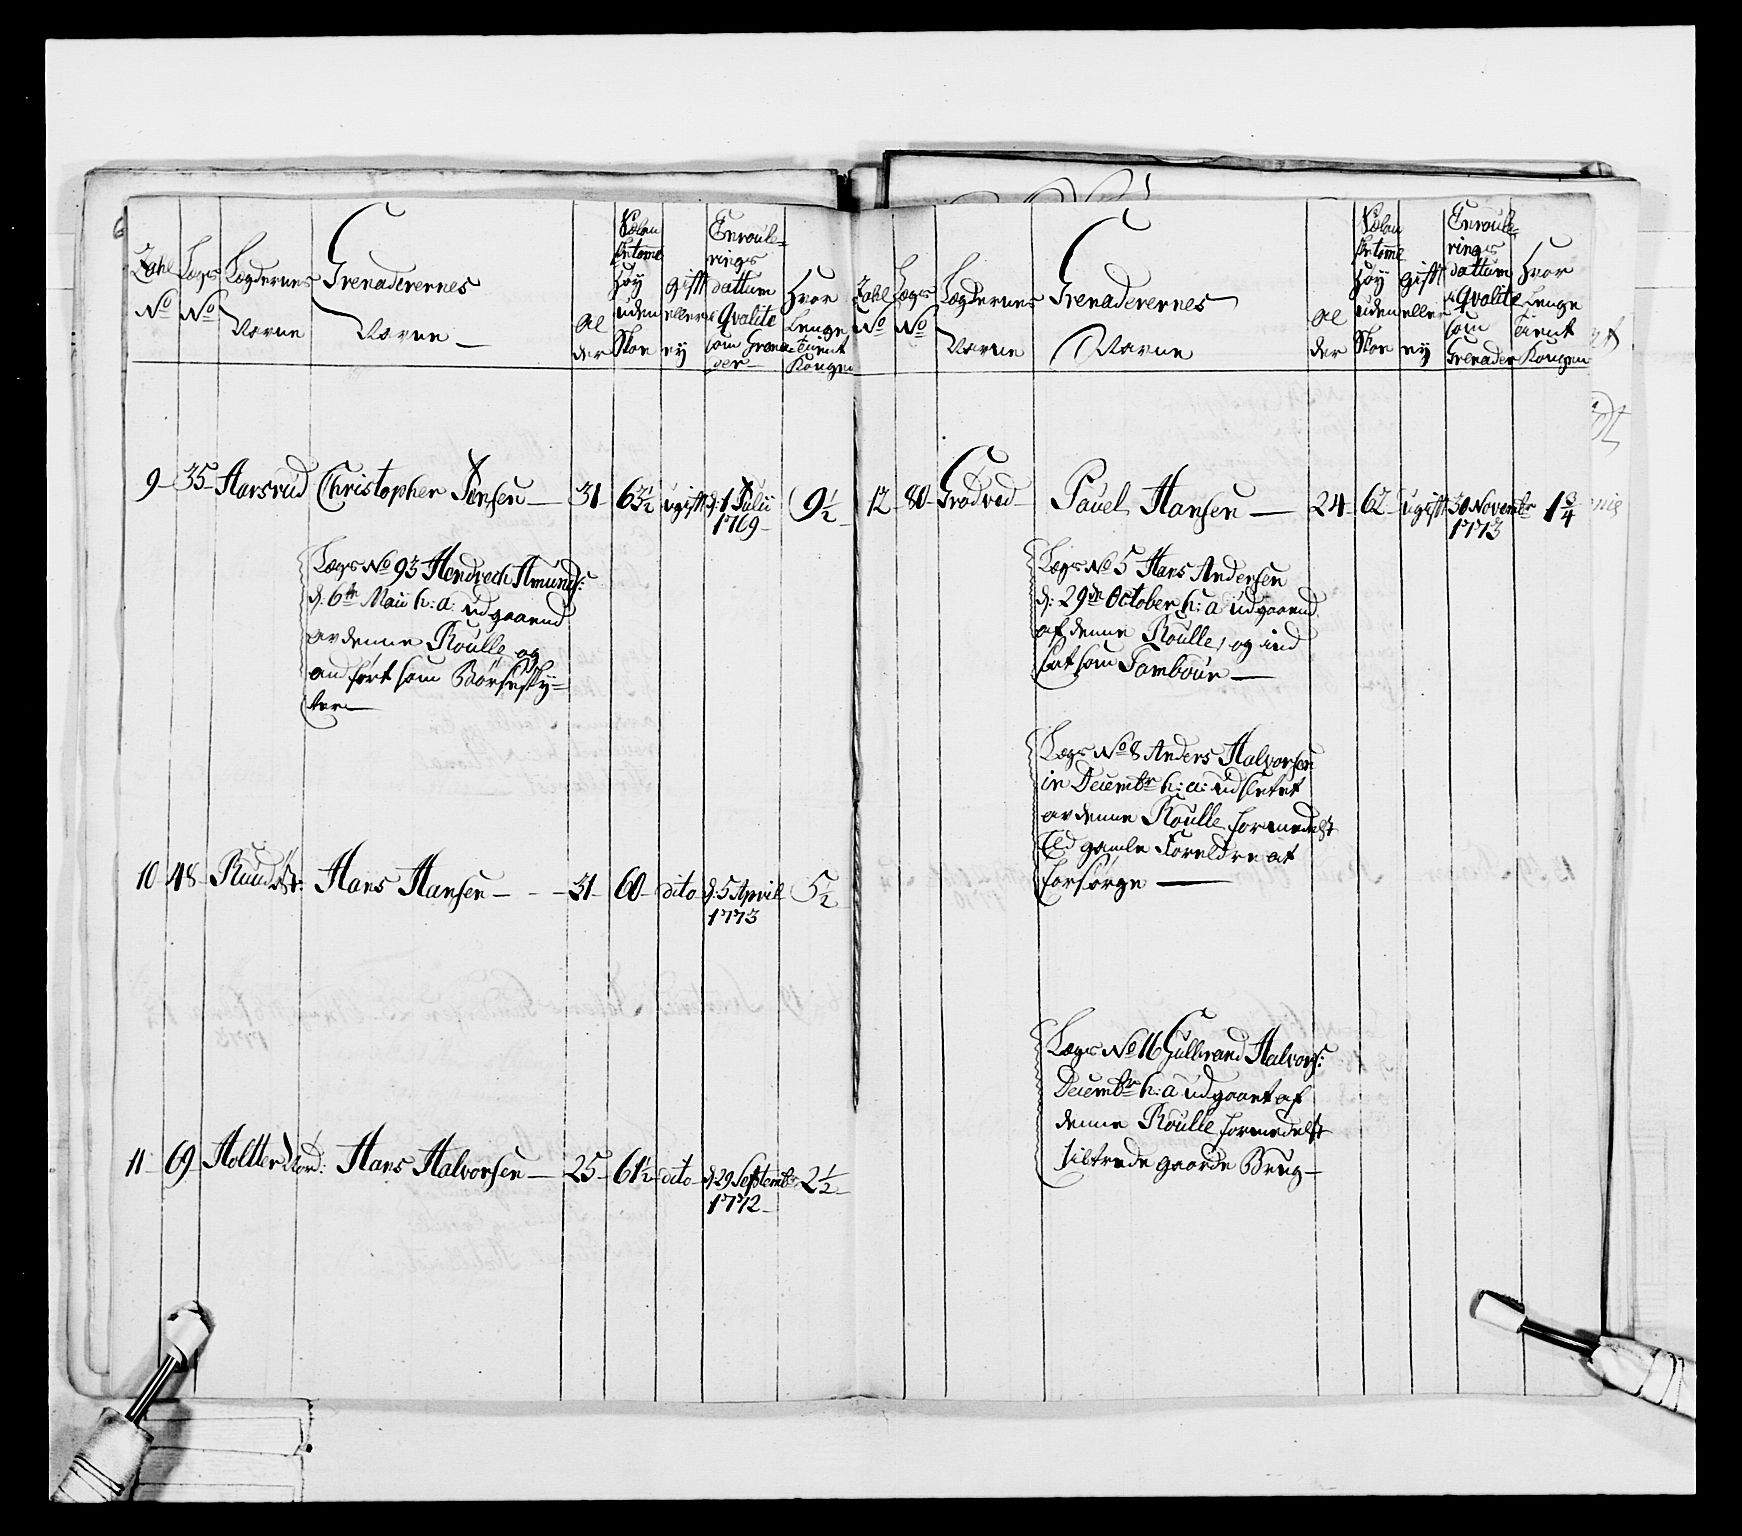 Zahl No
Lægs No
Lægdernes Navne
Grenaderernes Navne
Alder
Uden Skoe
gift eller ey
Enroulerings dattum Qvalite som Grenader
Hvor Lenge tient Kongen
9 35 Aarsrud Christopher Jensen 31 63½ ugift d: 1 Julii 1769 9½
Lægs No 93 Hendrech Amunds:
d: 6te Maii h: a: udgaaend
av denne Roulle og
anført som Børseskÿ=
ter
10 48 Ruud Hans Hansen 31 60 dito d: 5 April 1773 5½
11 69 Holtter Nord: Hans Halvorsen 25 61½ dito d: 29 Septembr 1772 2½
Zahl No
Lægs No
Lægdernes Navne
Grenaderernes Navne
Alder
uden Skoe
gift eller ey
Enroulerings dattum Qvalite som Grenader
Hvor Lenge tient Kongen
12 80 Pauel Hansen 24 62 ugift 30 Novembr 1773 1¾
Lægs No 5 Hans Andersen
d: 29de October h: a udgaaend
af denne Roulle, og ind
sat som Tambour
Lægs No 8 Anders Halvorsen
in Decembr h: a: udslettet
av denne Roulle formedelst
Eld gamle Foreldre at
forsörge
Lægs No 16 Gulbrand Halvors:
Decembr h: a udgaaet af
denne Roulle formedelst
tiltrede gaards Brug